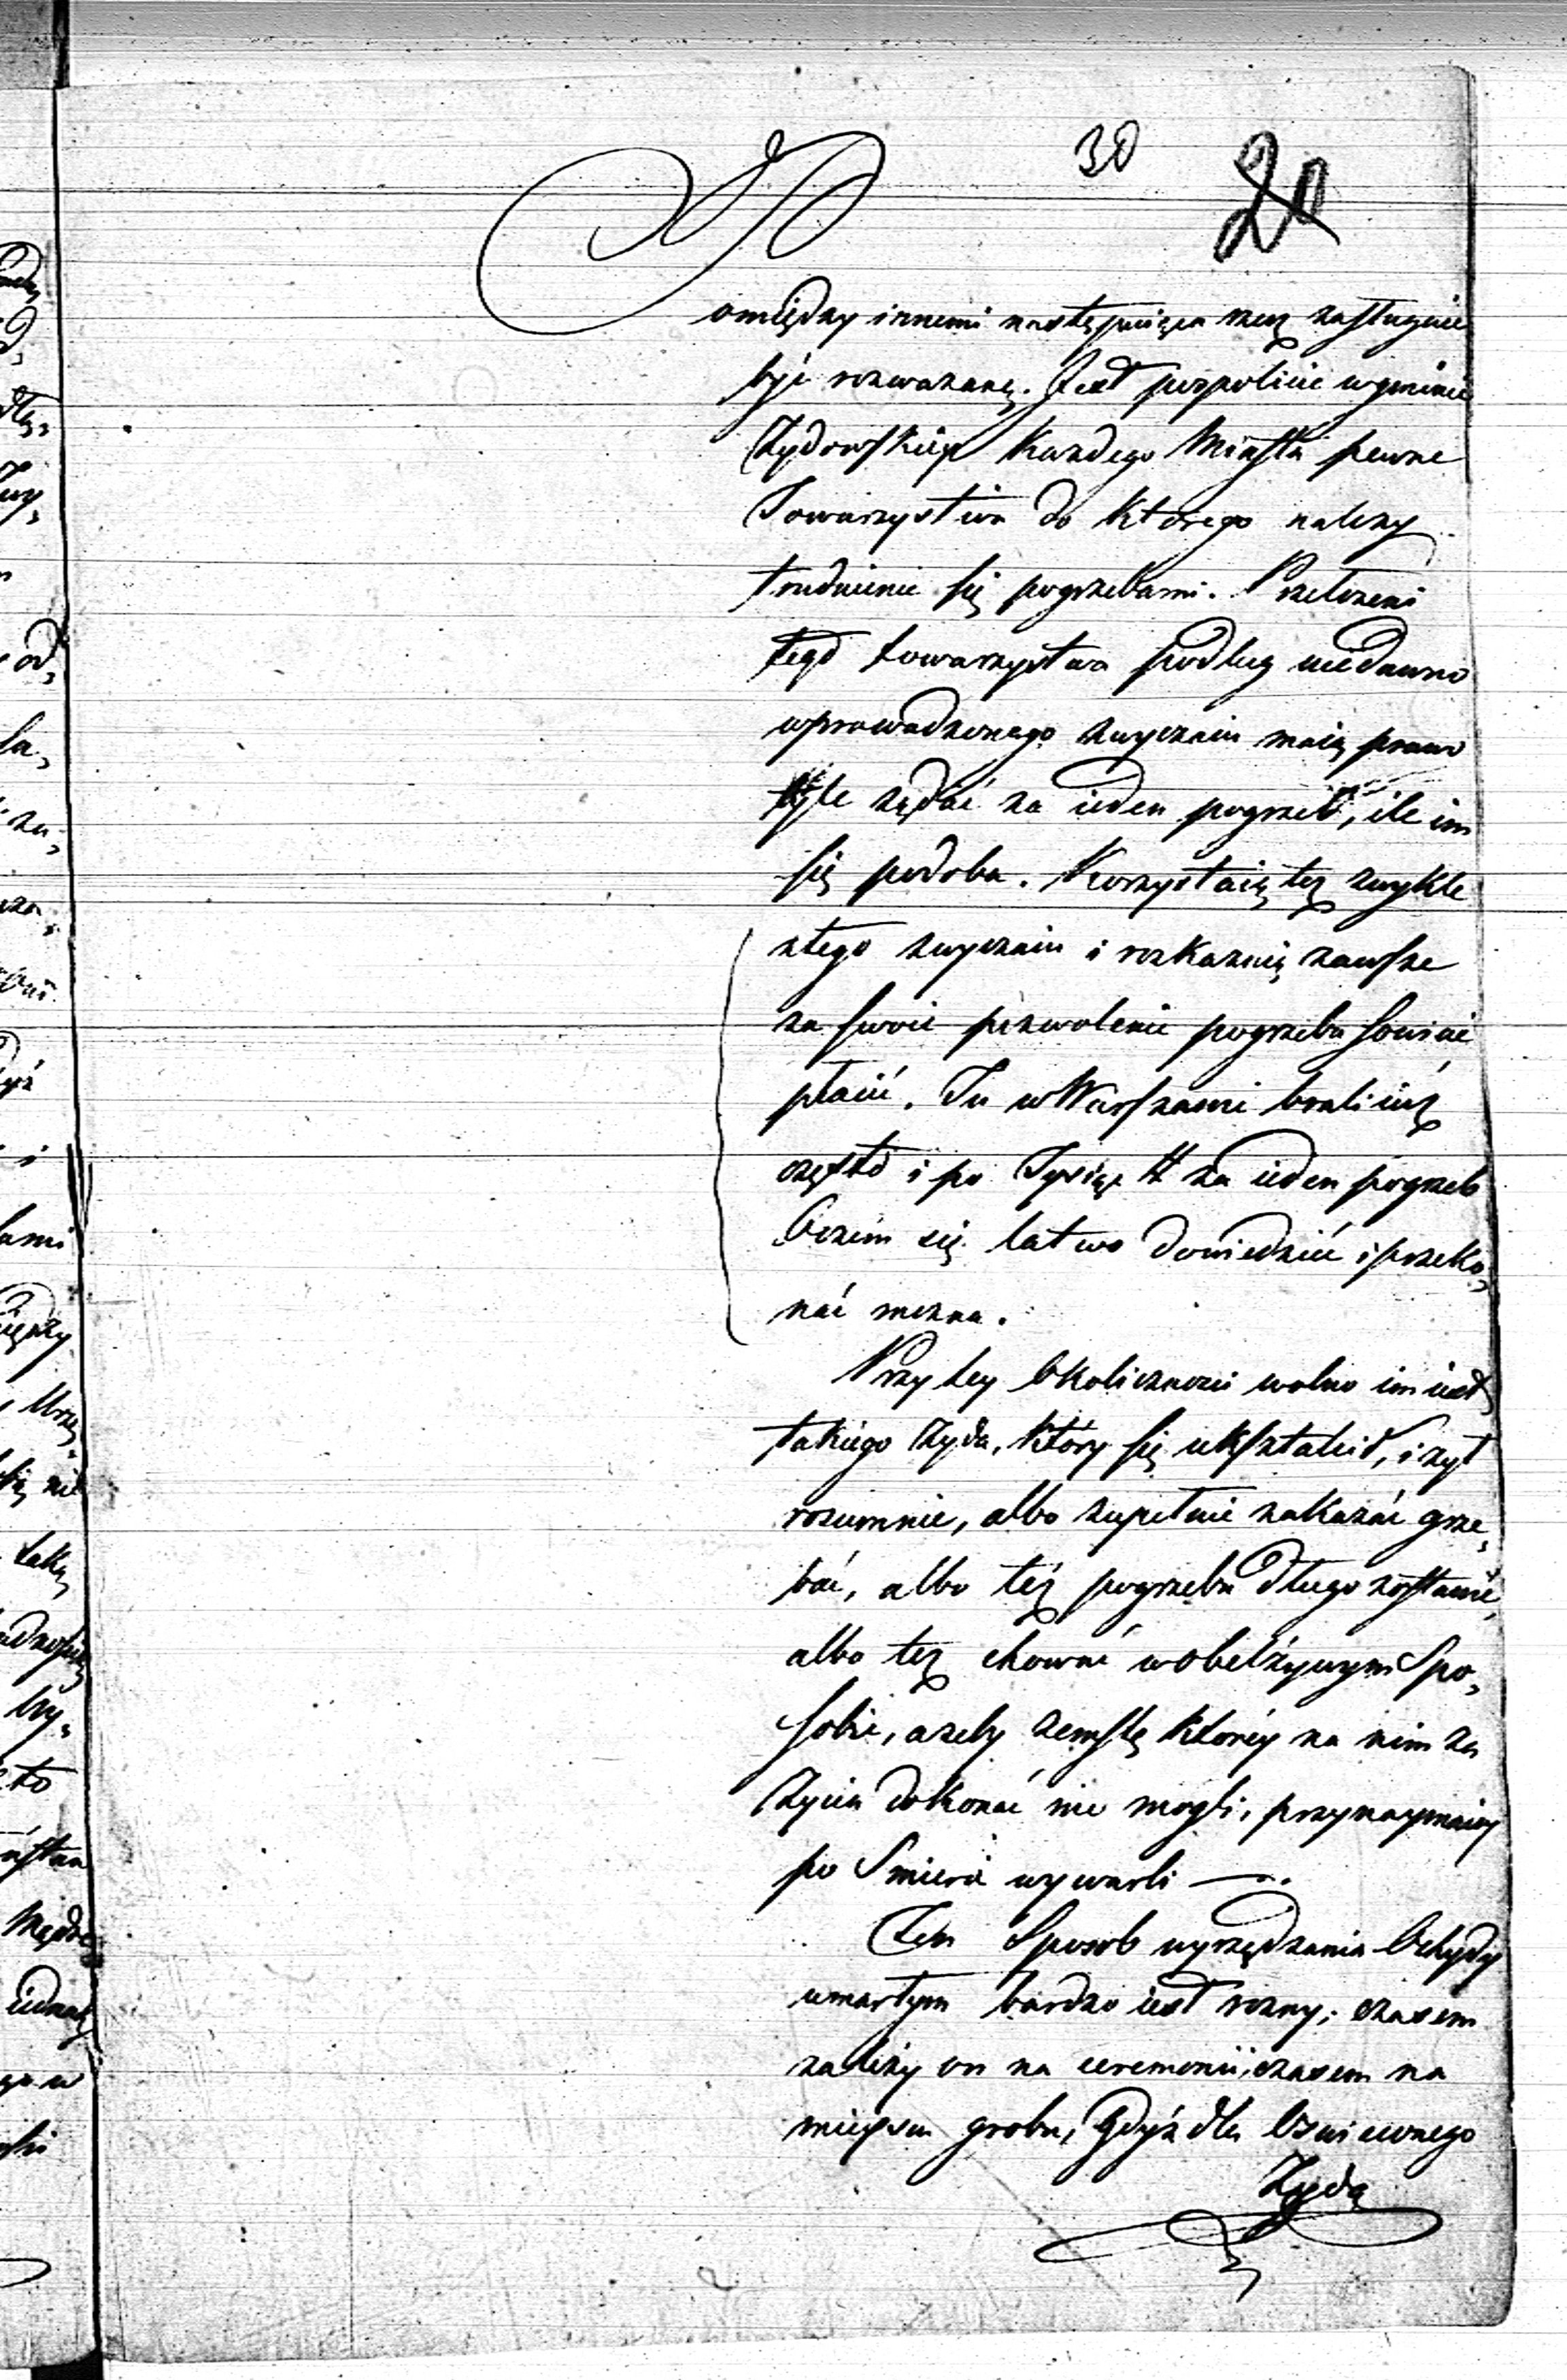 30 20
Pomiędzy innemi następuiąca rzecz zasługuie
być rozważaną. Jest pospolicie w gminie
Żydowskiey każdego Miasta pewne
Towarzystwo do którego należy
trudnienie się pogrzebami. Przełożeni
tego towarzystwa podług niedawno
wprowadzonego zwyczaiu maią prawo
tyle żądać za ieden pogrzeb, ile im
się podoba. Korzystaią też zwykle
z tego zwyczaiu i rozkazuią zawsze
za swoie pozwolenie pogrzebu sowicie
płacić. Tu w Warszawie brali iuż
często i po Tysiąc # za ieden pogrzeb
O czém się łatwo dowiedzieć i przeko„
nać można.
Przy tey Okoliczności wolno im iest
takiego Żyda, który się ukształcił, i żył
rozumnie, albo zupełnie zakazać grze„
bać, albo też pogrzebu długo zostawić,
albo też chować w obelżywym Spo„
sobie, ażeby zemstę któréy na nim za
Życia dokonać nie mogli, przynaymniéy
po Śmierci wywarli —.
Ten Sposob wyrządzania Ochydy
umarłym bardzo iest rożny; czasem
zależy on na ceremonii, czasem na
mieyscu grobu, Gdyż dla Oświeconego
Żyda